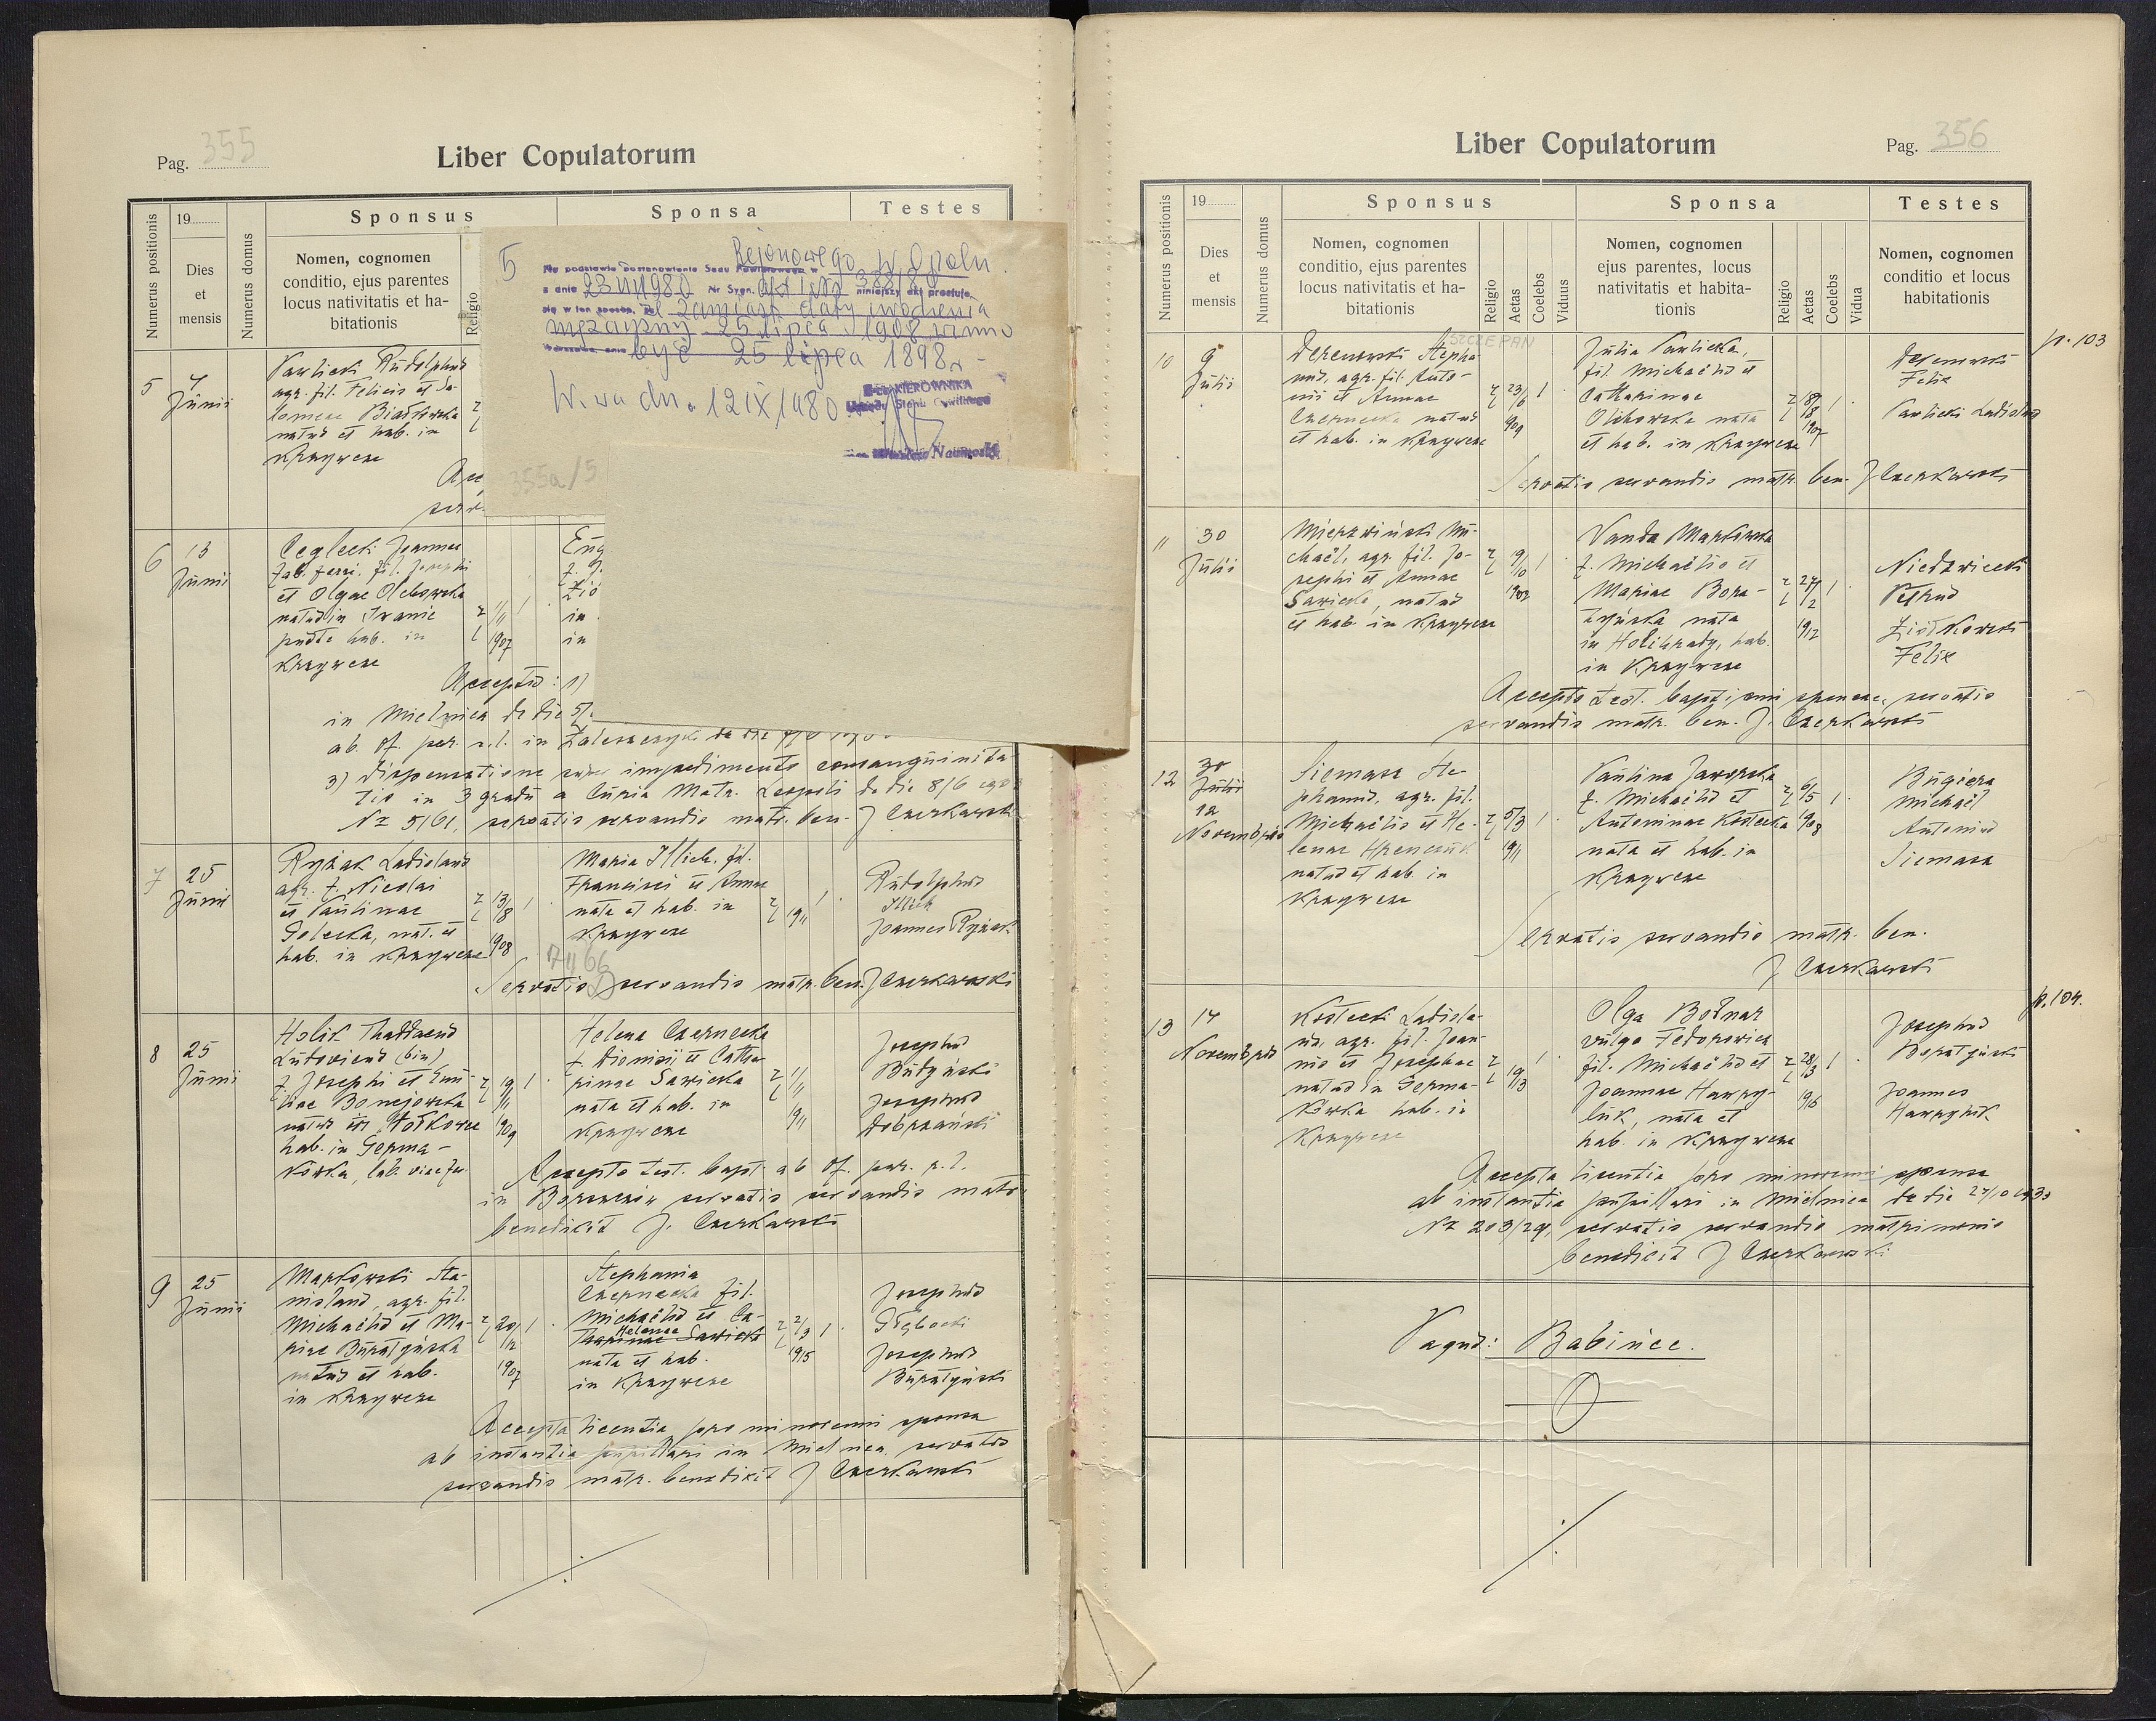 Pag. 355
Liber Copulatorum
Numerus positionis
19
Dies
et
mensis
Numerus domus
Sponsus
Nomen, cognomen
conditio, ejus parentes
locus nativitatis et ha-
bitationis
Religio
Sponsa
Testes
5
Rejonowego w Opolu
Na podstawie postanowienia Sądu Powiatowego w
z dnia 23 VII 1980 Nr Sygn. niniejszy akt prostuje
się w ten sposób, że zamiast daty urodzenia
mężczyzny 25 lipca 1908 winno
być 25 lipca 1898 r.
W-wa dn. 12 IX 1980
KIEROWNIKA
Urzędu Stanu Cywilnego
355a/5
5
7
Junii
Pawlicki Rudolphus
agr. fil. Felicis et Sa-
lomeae
natus et hab. in
Krzywcze
6
13
Junii
Ceglecki Joannes
fab. ferri. fil. Josephi
et Olgae Olchowska
natus in Iwanie
puste hab. in
Krzywcze
r l
1/11
907
1
Eug
in
in
Acceptis: 1)
in Mielnica de die 5/
ab. of. par. r. l. in Zaleszczyki de die
3) dispensatione super impedimento consanguinita-
tis in 3 gradu a Curia Metr. Leopoli de die 8/6
Nr 5161, servatis servandis matr. ben. J Czerkawski
7
25
Junii
Ryżak Ladislaus
agr. f. Nicolai
et Paulinae
Golecka, nat. et
hab. in Krzywcze
r l
13/8
908
1
Maria Illich, fil.
Francisci et Annae
nata et hab. in
Krzywcze
r l
1911
1
Rudolphus
Illich
Joannes Ryżak
Servatis servandis matr. ben. J Czerkawski
8
25
Junii
Holik Thaddaeus
Ludovicus (bin)
f. Josephi et Emi-
liae
natus in
hab. in Germa-
kówka,
r l
19/11
909
1
Helena Czernecka
f. Dionisii et Catha-
rinae Sawicka
nata et hab. in
Krzywcze
r l
1/11
911
Josephus
Josephus
Dobrzański
Accepto test. bapt. ab of. par. r. l.
in Borszczów servatis servandis matr.
benedixit J. Czerkawski
9
25
Junii
Markowski Sta-
nislaus, agr. fil.
Michaelis et Ma-
riae Buratyńska
natus et hab.
in Krzywcze
r l
20/12
907
1
Stephania
Czernecka fil.
Michaelis et Ca-
Helenae
tharinae Sawicka
nata et hab.
in Krzywcze
r l
2/3
915
1
Josephus
Głębocki
Josephus
Buratyński
Accepta licentia pro minorenni sponsa
ab instantia pupillari in Mielnica servatis
servandis matr. benedixit J Czerkawski
Liber Copulatorum
Pag. 356
Numerus positionis
19
Dies
et
mensis
Numerus domus
Sponsus
Nomen, cognomen
conditio, ejus parentes
locus nativitatis et ha-
bitationis
Religio
Aetas
Coelebs
Viduus
Sponsa
Nomen, cognomen
ejus parentes, locus
nativitatis et habita-
tionis
Religio
Aetas
Coelebs
Vidua
Testes
Nomen, cognomen
conditio et locus
habitationis
p. 103
10
9
Julii
SZCZEPAN
Derenowski Stepha-
nus, agr. fil. Anto-
nii et Annae
Czernecka natus
et hab. in Krzywcze
r l
23/6
909
1
Julia Pawlicka,
fil. Michaelis et
Catharinae
Olchowska nata
et hab. in Krzywcze
r l
18/8
907
1
Derenowski
Felix
Pawlicki Ladislaus
Servatis servandis matr. ben. J Czerkawski
11
30
Julii
Mierzwiński Mi-
chaël, agr. fil. Jo-
sephi et Annae
Sawicka, natus
et hab. in Krzywcze
r l
9/10
902
1
Vanda Markowska
f. Michaelis et
Mariae Bura-
tyńska nata
in Holihrady, hab.
in Krzywcze
r l
27/2
912
1
Niedzwiecki
Petrus
Ziółkowski
Felix
Accepto test. baptismi sponsae, servatis
servandis matr. ben. J. Czerkawski
12
30
Julii
12
Novembris
Siemasz Ste-
phanus, agr. fil.
Michaelis et He-
lenae Hrenczuk
natus et hab. in
Krzywcze
r l
5/3
911
1
Paulina Jaworska
f. Michaelis et
Antoninae Kostecka
nata et hab. in
Krzywcze
r l
6/5
908
1
Bugiera
Michaël
Antonius
Siemasz
Servatis servandis matr. ben.
J Czerkawski
p. 104.
13
14
Novembris
Kostecki Ladisla-
us, agr. fil. Joan-
nis et Josephae
natus in Germa-
kówka hab. in
Krzywcze
r l
1913
1
Olga Bodnar
vulgo Fedorowicz
fil. Michaelis et
Joannae Hawry-
luk, nata et
hab. in Krzywcze
r l
28/3
915
1
Josephus
Buratyński
Joannes
Hawryluk
Accepta licentia pro minorenni sponsa
ab instantia pupillari in Mielnica de die 27/10 1933
Nr 203/29, servatis servandis matrimonio
benedixit J Czerkawski
Pagus: Babińce.